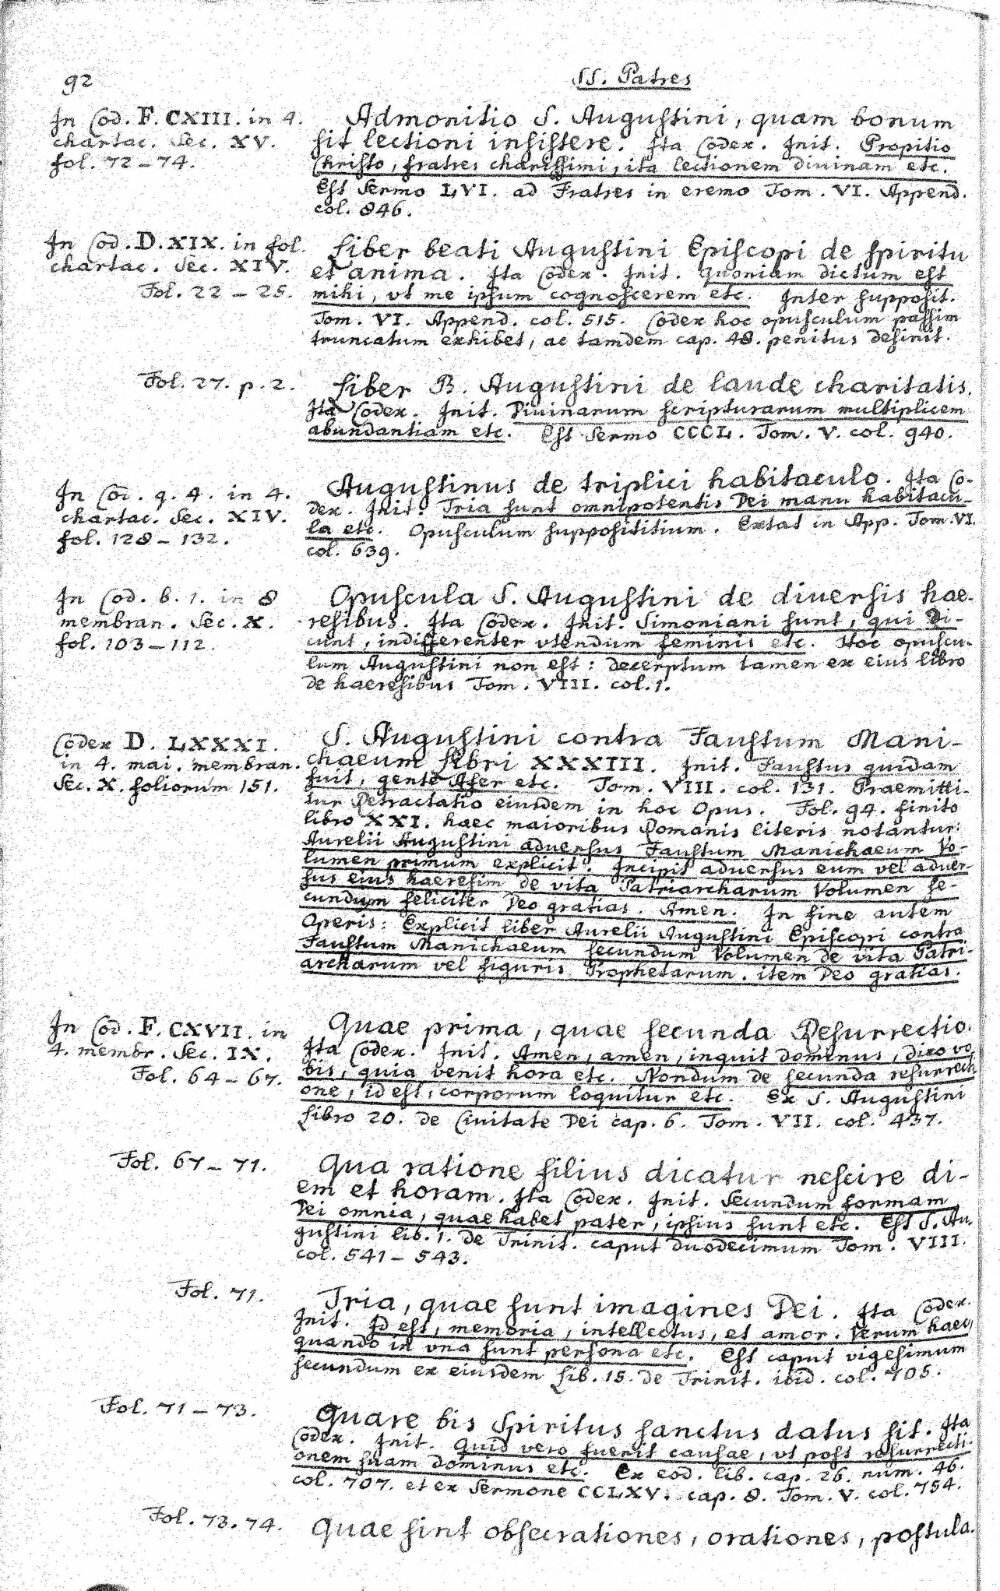 92
SS. Patres
In Cod. F. CXIII. in 4.
chartac. Sec. XV.
fol. 72 – 74.
Admonitio S. Augustini, quam bonum
sit lectioni insistere. Ita Codex. Init. Propitio
Christo, fratres charissimi, ita lectionem divinam etc.
Est Sermo LVI. ad Fratres in eremo Tom. VI. Append.
col. 846.
In Cod. D. XIX. in fol.
chartac. Sec. XIV.
Fol. 22 – 25.
Liber beati Augustini Episcopi de spiritu
et anima. Ita Codex. Init. Quoniam dictum est
mihi, vt me ipsum cognoscerem etc. Inter supposit.
Tom. VI. Append. col. 515. Codex hoc opusculum passim
truncatum exhibet, ac tamdem cap. 48. penitus desinit.
Fol. 27. p. 2.
Liber B. Augustini de laude charitatis.
Ita Codex. Init. Divinarum scripturarum multiplicem
abundantiam etc. Est Sermo CCCL. Tom. V. col. 940.
In Cod. q. 4. in 4.
chartac. Sec. XIV.
fol. 128 – 132.
Augustinus de triplici habitaculo. Ita Co-
dex. Init. Tria sunt omnipotentis Dei manu habitacu-
la etc. Opusculum supposititium. Extat in App. Tom. VI.
col. 639.
In Cod. b. 1. in 8
membran. Sec. X.
fol. 103 – 112.
Opuscula S. Augustini de diversis hae-
resibus. Ita Codex. Init. Simoniani sunt, qui di-
cunt, indifferenter vtendum feminis etc. Hoc opuscu-
lum Augustini non est: decerptum tamen ex eius libro
de haeresibus Tom. VIII. col. 1.
Codex D. LXXXI.
in 4. mai. membran.
Sec. X. foliorum 151.
S. Augustini contra Faustum Mani-
chaeum libri XXXIII. Init. Faustus quidam
fuit, gente Afer etc. Tom. VIII. col. 131. Praemitti-
tur Retractatio eiusdem in hoc Opus. Fol. 94. finito
libro XXI. haec maioribus Romanis literis notantur:
Aurelii Augustini adversus Faustum Manichaeum Vo-
lumen primum explicit. Incipit adversus eum vel adver-
sus eius haeresim de vita Patriarcharum Volumen se-
cundum feliciter Deo gratias. Amen. In fine autem
Operis: Explicit liber Aurelii Augustini Episcopi contra
Faustum Manichaeum secundum Volumen de vita Patri-
archarum vel figuris Prophetarum. item Deo gratias.
In Cod. F. CXVII. in
4. membr. Sec. IX.
Fol. 64 – 67.
Quae prima, quae secunda Resurrectio.
Ita Codex. Init. Amen, amen, inquit dominus, dico vo
bis, quia venit hora etc. Nondum de secunda resurrecti
one, id est, corporum loquitur etc. Ex S. Augustini
Libro 20. de Civitate Dei cap. 6. Tom. VII. col. 437.
Fol. 67 – 71.
Qua ratione filius dicatur nescire di-
em et horam. Ita Codex. Init. Secundum formam
Dei omnia, quae habet pater, ipsius sunt etc. Est S. Au-
gustini lib. 1. de Trinit. caput duodecimum Tom. VIII.
col. 541 – 543.
Fol. 71.
Tria, quae sunt imagines Dei. Ita Codex.
Init. Id est, memoria, intellectus, et amor. Verum haec,
quando in vna sunt persona etc. Est caput vigesimum
secundum ex eiusdem Lib. 15. de Trinit. ibid. col. 705.
Fol. 71 – 73.
Quare bis Spiritus sanctus datus sit. Ita
Codex. Init. Quid vero fuerit causae, vt post resurrecti-
onem suam dominus etc. Ex eod. lib. cap. 26. num. 46.
col. 707. et ex Sermone CCLXV. cap. 8. Tom. V. col. 754.
Fol. 73. 74.
Quae sint obsecrationes, orationes, postula-